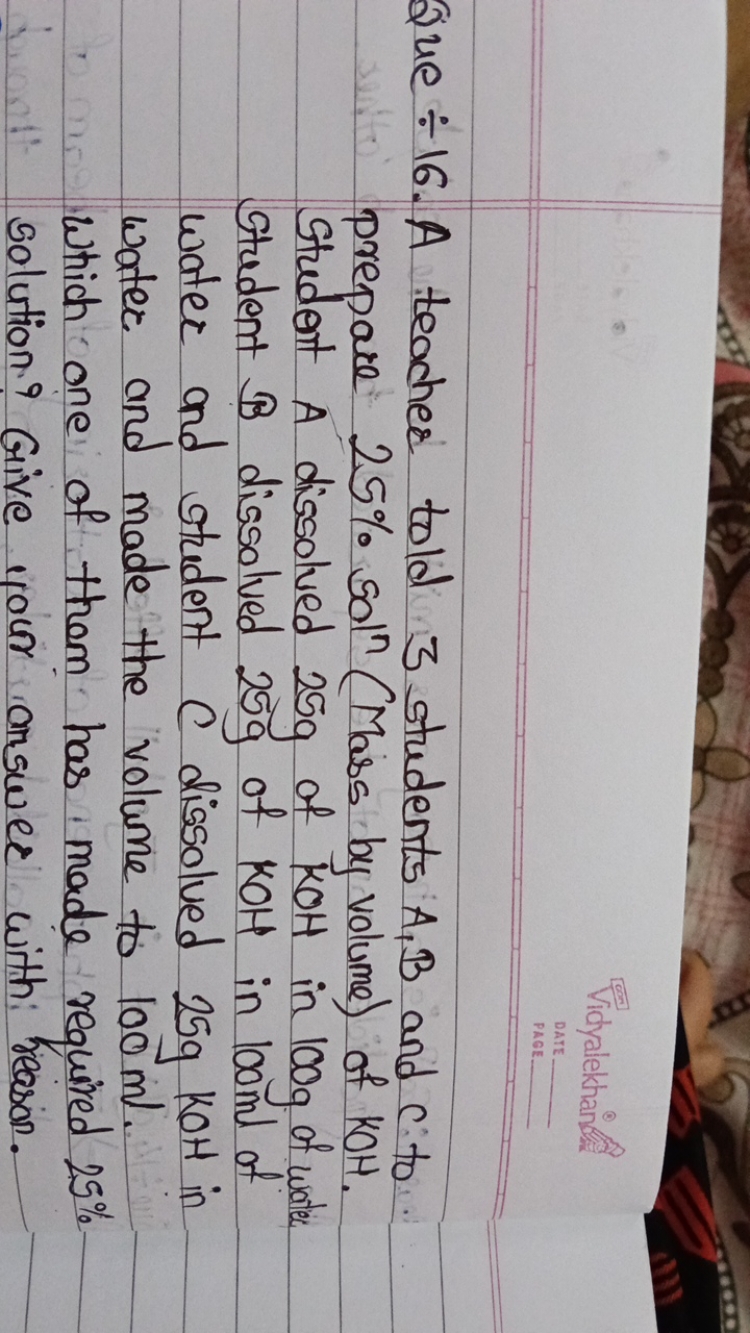 Vidyalekhan®
DATE
PAGE
Que ÷ 16. A teacher told 3 students A, B and C to
prepare 25% solⁿ (Mass by volume) of KOH.
Student A dissolved 25g of KOH in 100g of water
Student B dissolved 25g of KOH in 100ml of
water and student C dissolved 25g KOH in
water and made the volume to 100ml.
Which one of them has made required 25%
solution? Give your answer with reason.